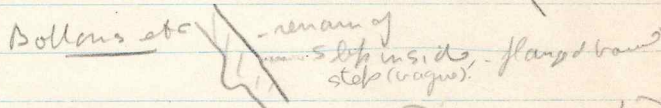 Bottoms etc - remains of
step inside, - flanged
step (vague).